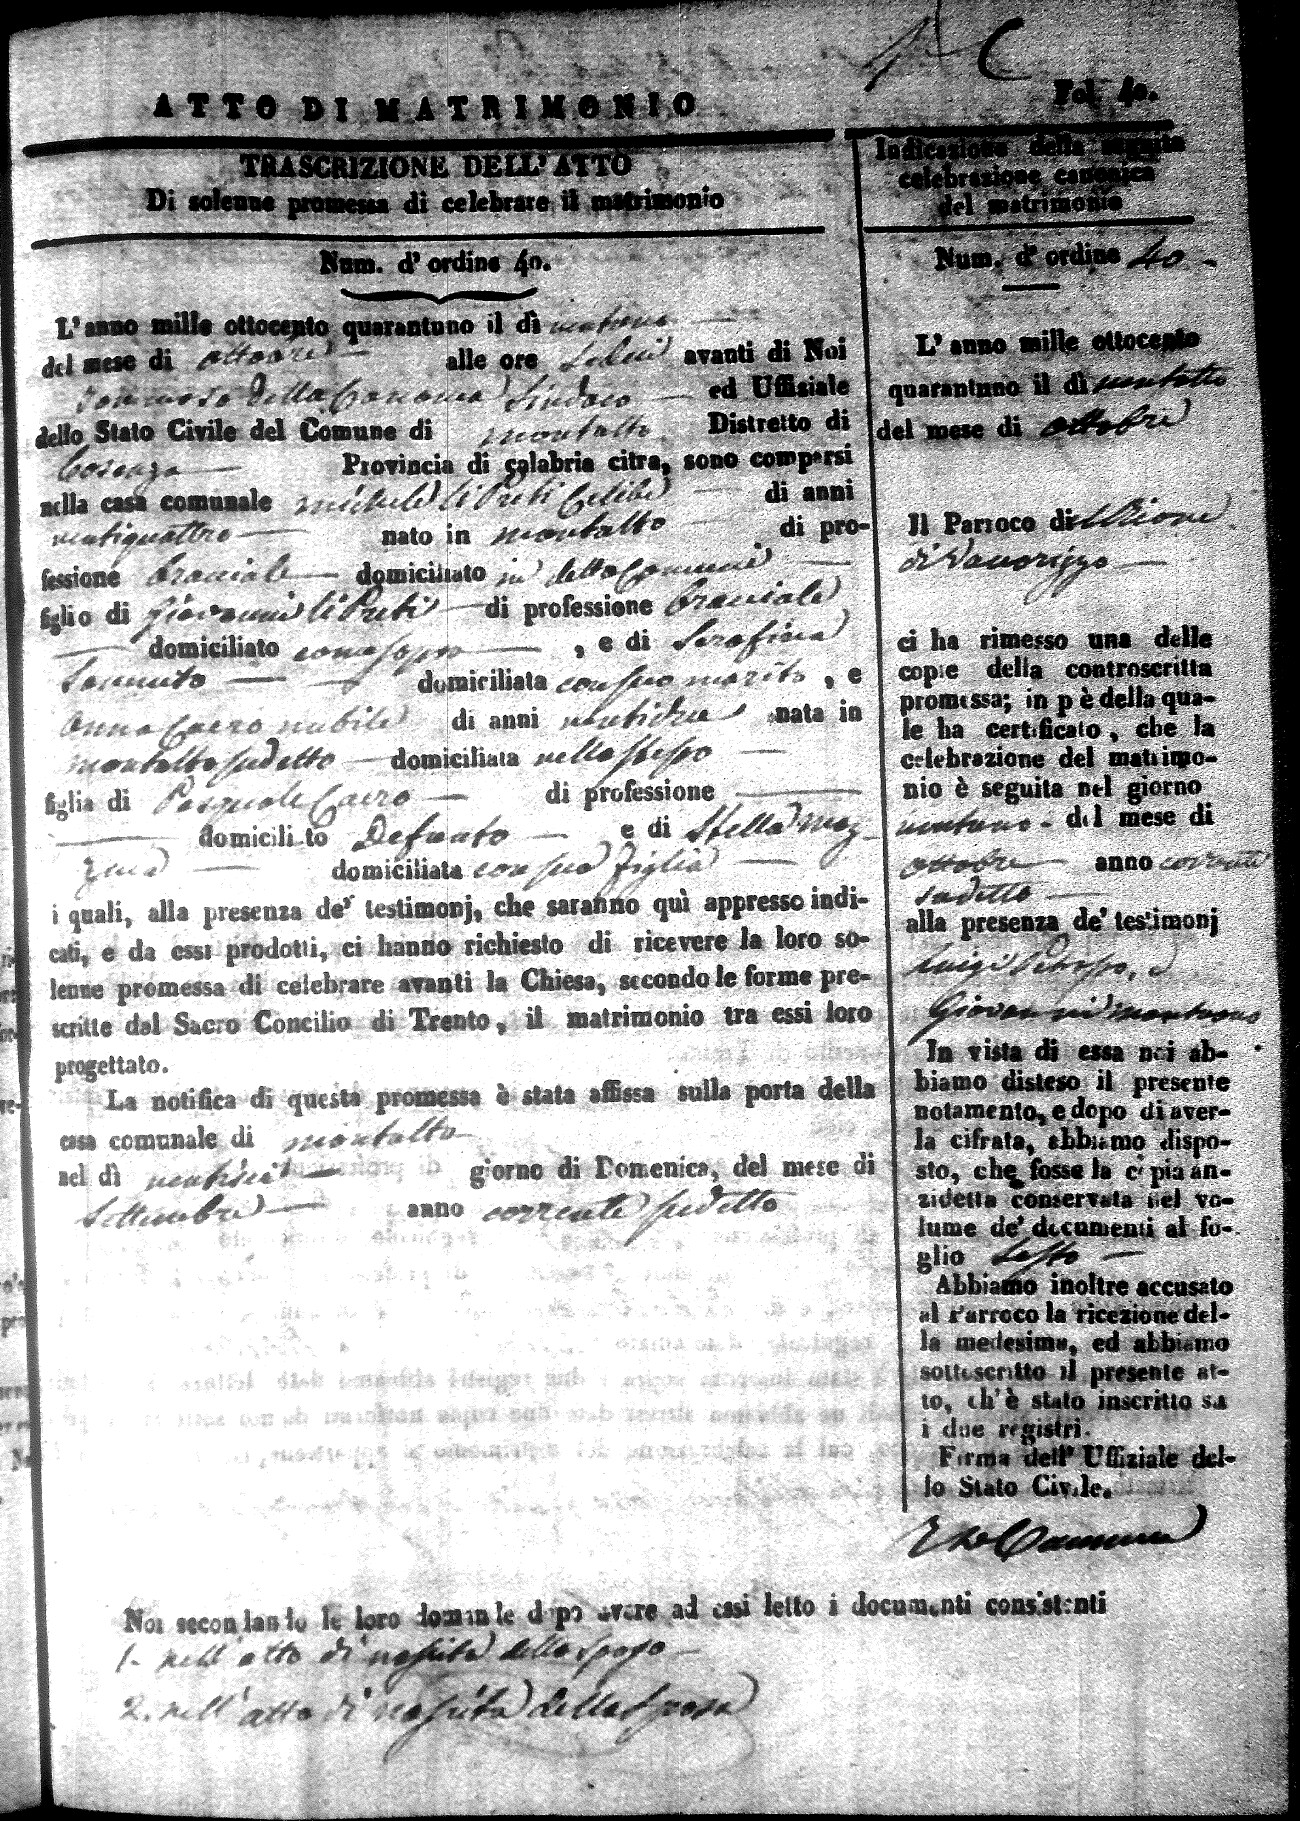 Fol 40.
ATTO DI MATRIMONIO
TRASCRIZIONE DELL'ATTO
Di solenne promessa di celebrare il matrimonio
Num. d'ordine 40.
L'anno mille ottocento quarantuno il dì
del mese di ottobre alle ore sedici avanti di Noi
Tommaso della Cananea Sindaco ed Uffiziale
dello Stato Civile del Comune di montalto Distretto di
Cosenza Provincia di calabria citra, sono comparsi
nella casa comunale michele li Preti Celibe di anni
ventiquattro nato in montalto di pro-
fessione Bracciale domiciliato in detto Comune
figlio di Giovanni li Preti di professione Bracciale
domiciliato come sopra, e di Serafina
Sannuto domiciliata con suo marito, e
Anna Caero nubile di anni ventidue nata in
montalto sudetto domiciliata nello stesso
figlia di Pasquale Caero di professione
domicili to Defunto e di Stella maz-
zuca domiciliata con sua figlia
i quali, alla presenza de' testimonj, che saranno quì appresso indi-
cati, e da essi prodotti, ci hanno richiesto di ricevere la loro so-
lenne promessa di celebrare avanti la Chiesa, secondo le forme pre-
scritte dal Sacro Concilio di Trento, il matrimonio tra essi loro
progettato.
La notifica di questa promessa è stata affissa sulla porta della
casa comunale di montalto
nel dì ventisei giorno di Domenica, del mese di
Settembre anno corrente sudetto
Indicazione della seguita
celebrazione canonica
del matrimonio
Num. d'ordine 40
L'anno mille ottocento
quarantuno il dì ventotto
del mese di ottobre
Il Parroco di
di Vaccarizzo
ci ha rimesso una delle
copie della controscritta
promessa; in p è della qua-
le ha certificato, che la
celebrazione del matrimo-
nio è seguita nel giorno
ventuno del mese di
ottobre anno corrente
sudetto
alla presenza de' testimonj
Luigi, e
Giovanni
In vista di essa noi ab-
biamo disteso il presente
notamento, e dopo di aver-
la cifrata, abbiamo dispo-
sto, che fosse la c pia an-
zidetta conservata nel vo-
lume de' documenti al fo-
glio sesto
Abbiamo inoltre accusato
al Parroco la ricezione del-
la medesima, ed abbiamo
sottoscritto il presente at-
to, ch'è stato inscritto su
i due registri.
Firma dell' Uffiziale del-
lo Stato Civile.
Noi secondando le loro domande dopo avere ad essi letto i documenti consistenti
1. nell'atto di nascita dello sposo
2. nell'atto di nascita della Sposa